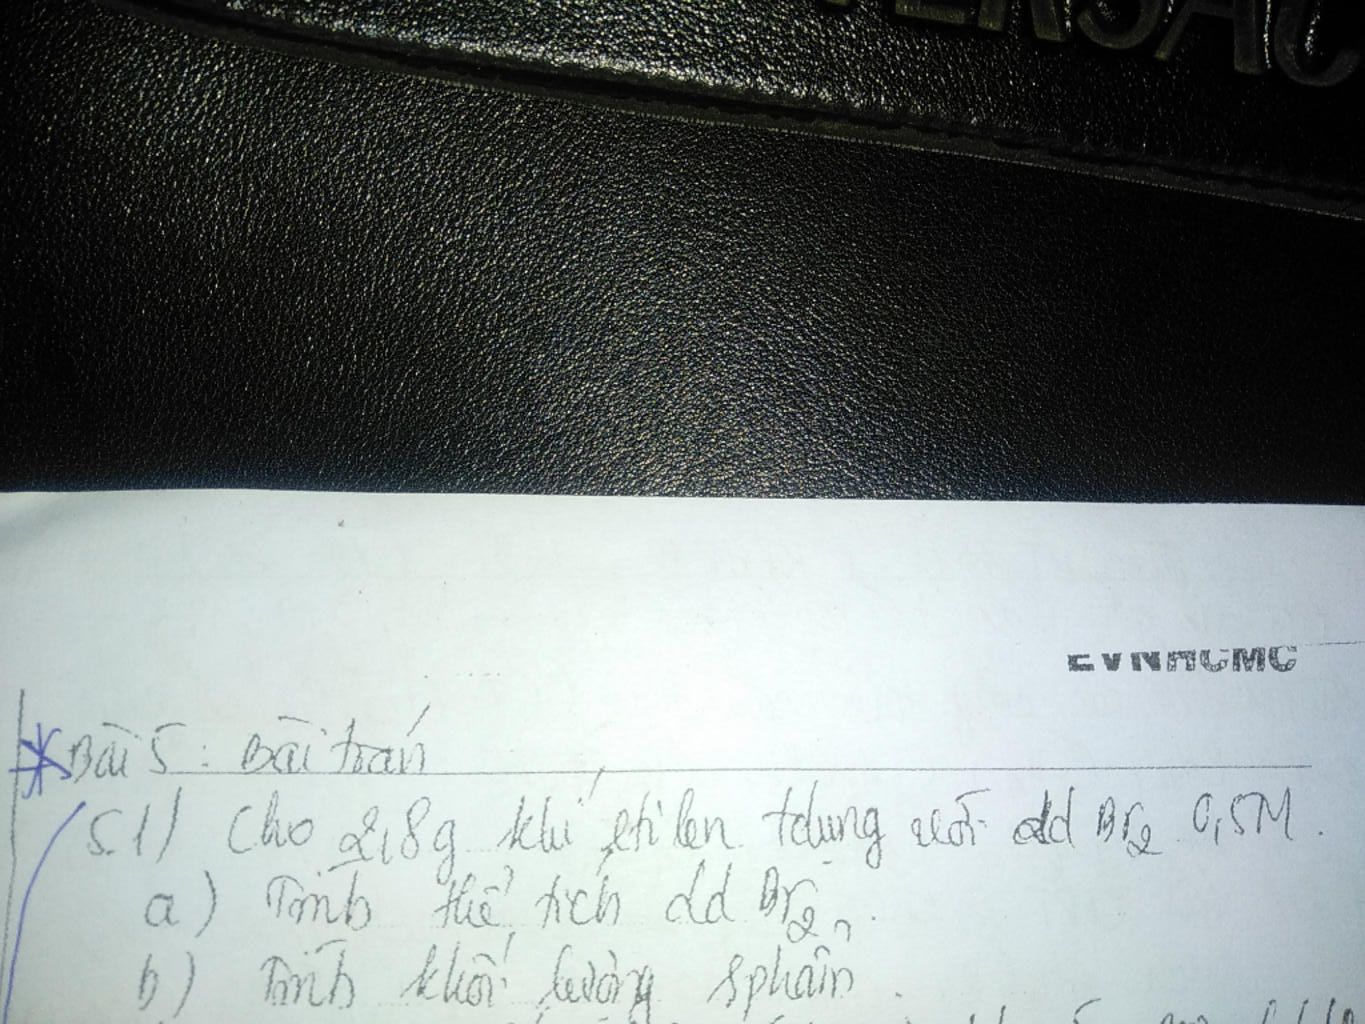 VERSAC
EVNHCMC
* Bài 5 : Bài toán
5.1) Cho 2,8g khí etilen tdung với dd Br2 0,5M.
a) Tính thể tích dd Br2.
b) Tính khối lượng sphẩm.